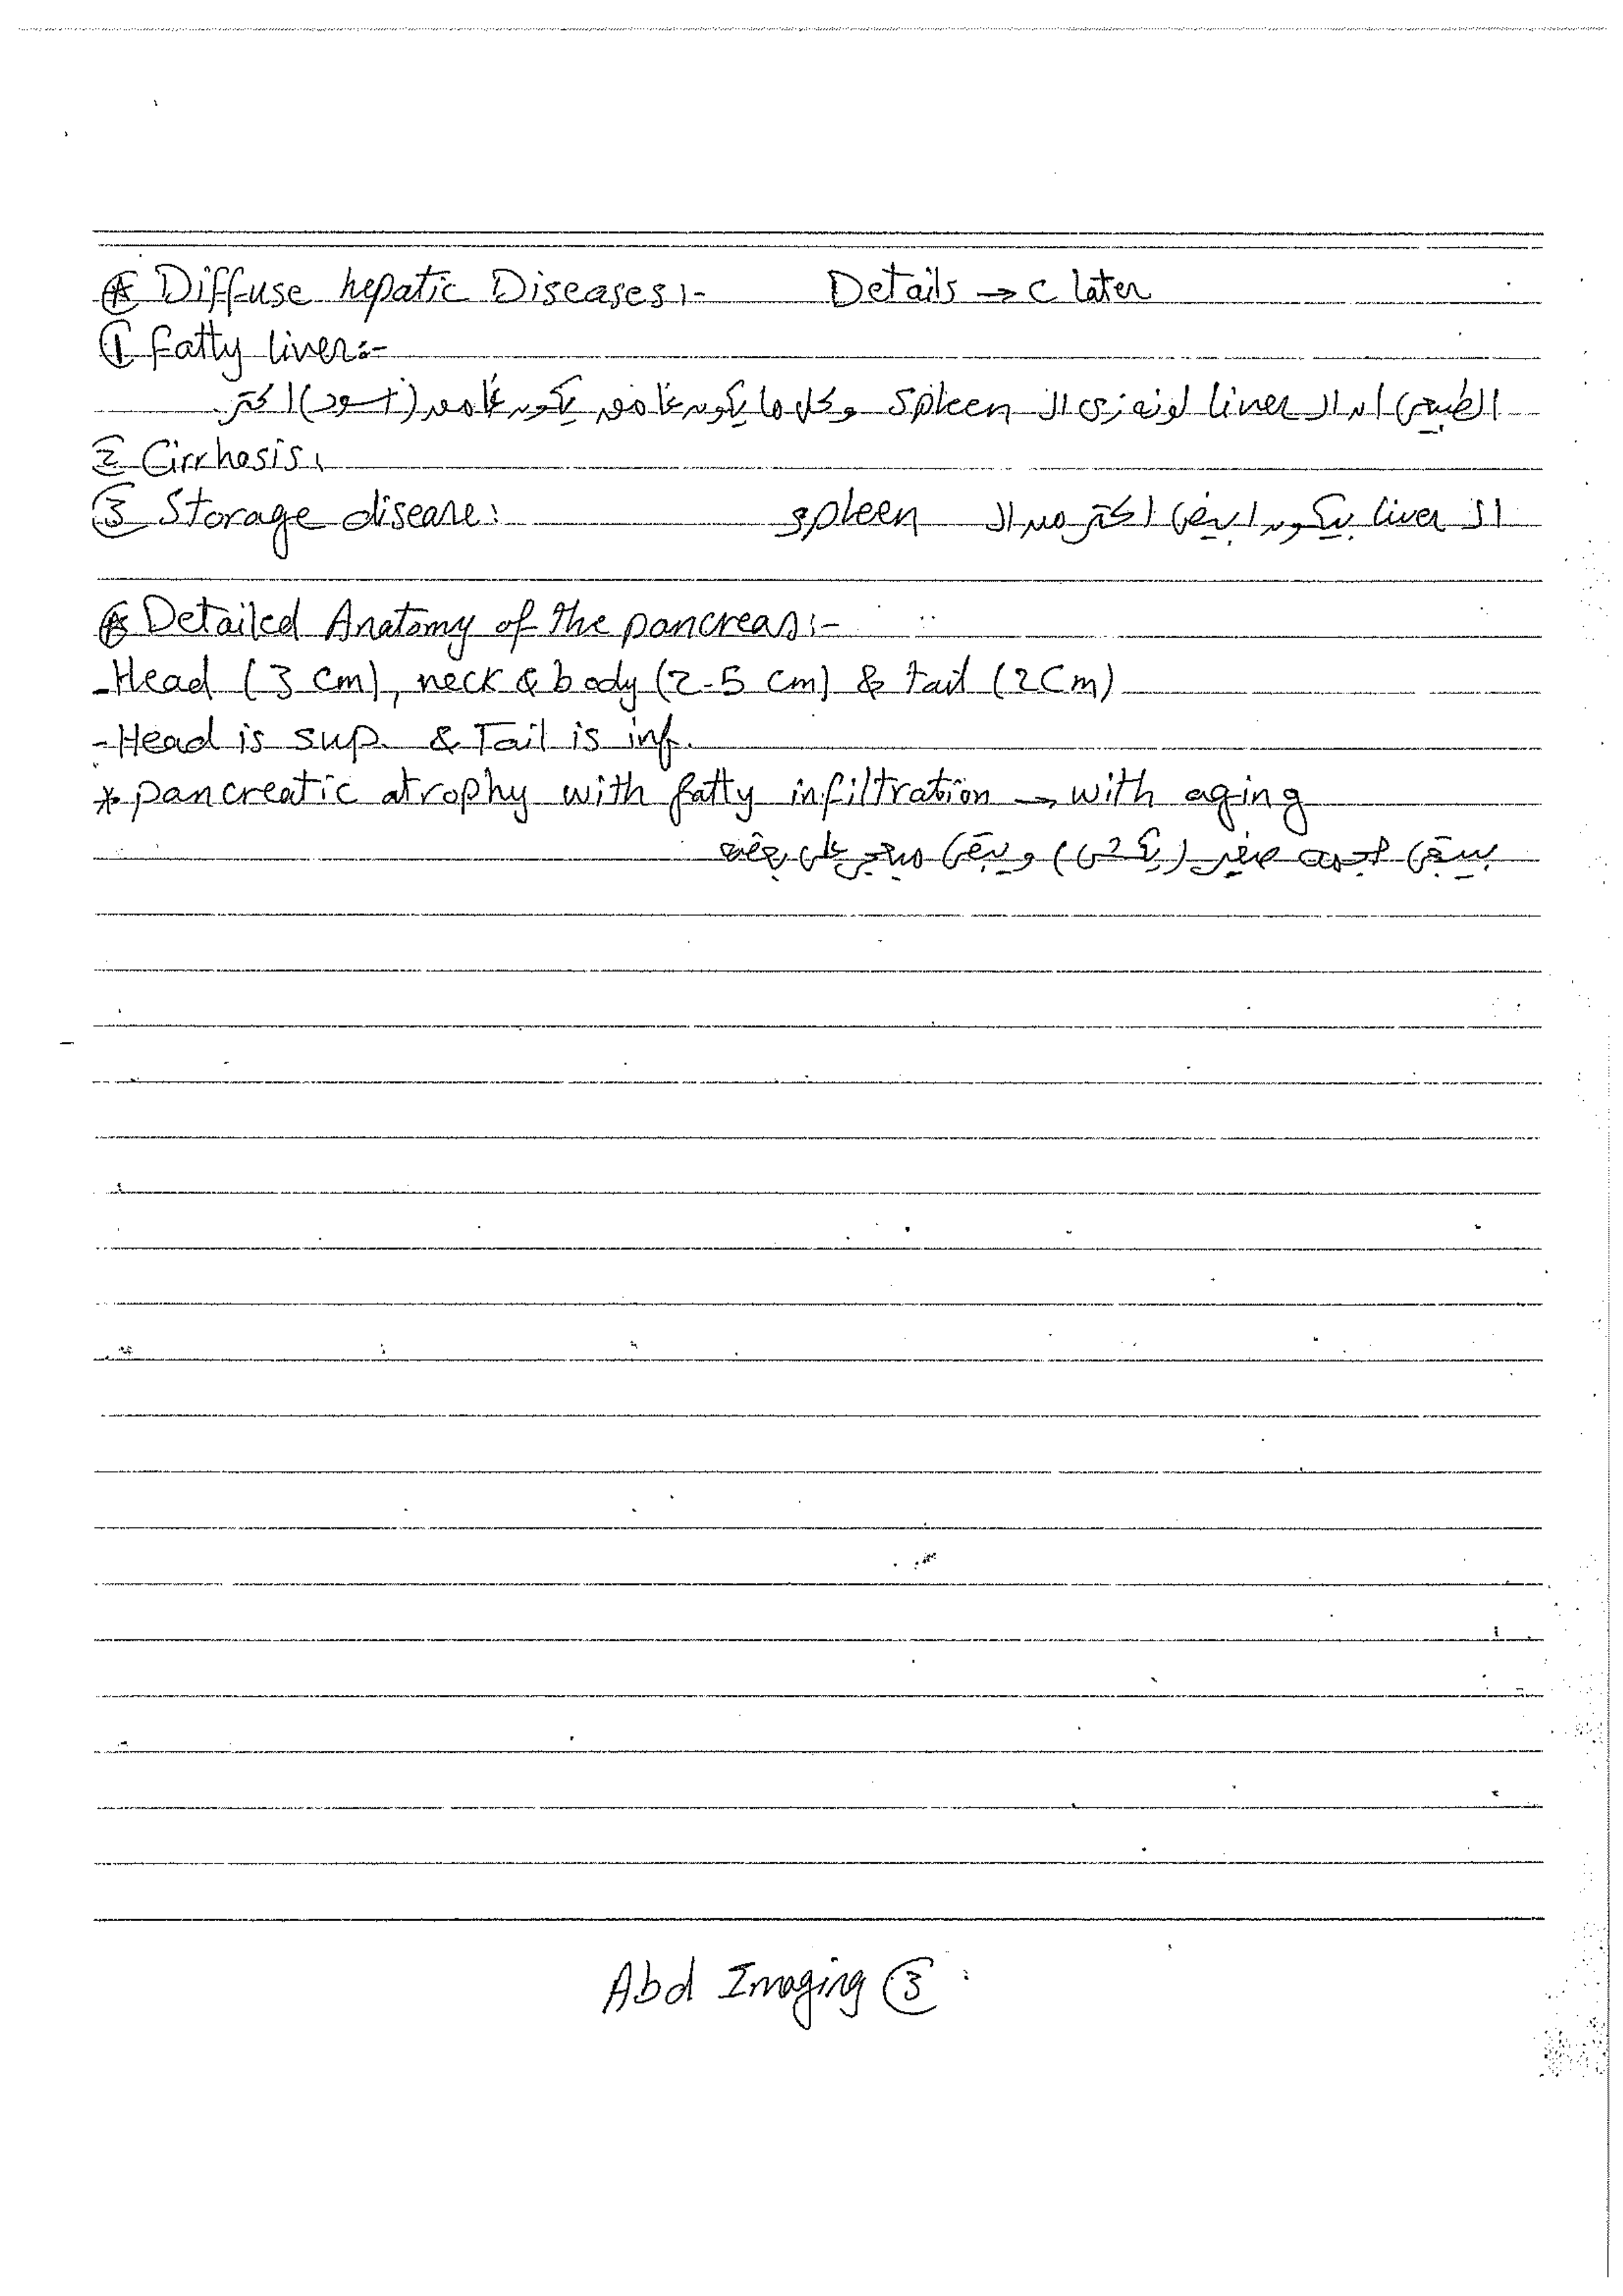 Ⓐ Diffuse hepatic Diseases:- Details → C later
① Fatty liver:-
الطبيعى ان ال liver لونه زى ال spleen وكل ما يكون غامق يكون غامق (اسود) اكتر
② Cirrhosis:
③ Storage disease: ال liver بيكون ابيض اكتر من ال spleen
Ⓐ Detailed Anatomy of the pancreas:-
- Head (3 cm), neck & body (2-5 cm) & tail (2 cm)
- Head is sup. & Tail is inf.
* pancreatic atrophy with fatty infiltration → with aging
بيبقى حجمه صغير (يكش) ويبقى معرج على بعضه
Abd Imaging ③